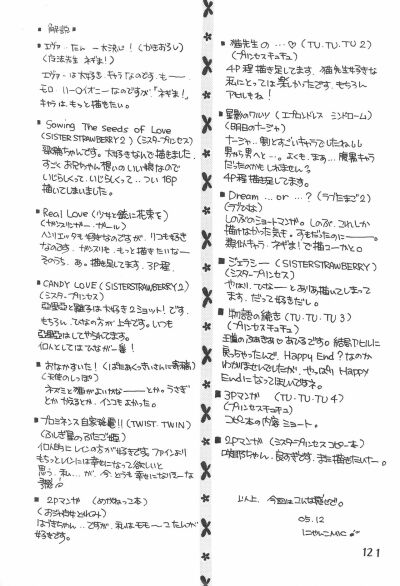 ■ 解説 ■
■ エヴァたん 一大決心! (かきおろし)
(魔法先生 ネギま!)
エヴァは大好きキャラなのです。も——
モロ ハーロイオニーなのですが、「ネギま!」
キャラは、もっと描きたい。
■ Sowing The Seeds of Love
(SISTERSTRAWBERRY2) (シスタープリンセス)
咲耶ちゃんです。大好きなんで描きました。
すごくお兄ちゃん想いのいい娘なので
いじらしくて、いじらしくて… つい 16P
描いてしまいました。
■ Real Love (少女と銃に花束を)
(ガンスリンガー・ガール)
ヘンリエッタも好きなのですが、リコも好き
なのです。ガンスリも、もっと描きたいなー
そのうち、ね。描き足してます、3P程。
■ CANDY LOVE (SISTERSTRAWBERRY2)
(シスタープリンセス)
亞里亞と雛子は大好き2ショット!です。
もちろん、ひなの方が上手です。いつも
亞里亞はしてやられてます。
何んとしてはひなが一番!
■ おなかすいた! (ばたあくっきぃさんに寄稿)
(天使のしっぽ)
ネズミと猫がよいかなー——とか。うさぎ
とかかえるとか、インコもよかった。
■ プロミネンス自家発電!! (TWIST.TWIN)
(ふしぎ星のふたご姫)
個人的にレインの方が好きです。ファインより
もちっとレインには幸せになって欲しいと
思う、私…が、今、とっても幸せになりそーな
予感!
■ 2Pマンガ (めがねっこ本)
(おジャ魔女どれみ)
はづきちゃん…ですが、私はももーこたんが
好きです。
■ 猫先生の … ♡ (TU.TU.TU 2)
(プリンセスチュチュ)
4P程 描き足してます。猫先生好きな
私にとっては楽しかったです。もちろん
アヒルもね!
■ 星影のワルツ (エプロンドレス シンドローム)
(明日のナージャ)
ナージャ…割とすごいキャラでしたね
男から男へと…。よくも、まぁ…腹黒キャラ
だったのかもしれません?
4P程描き足してます。
■ Dream …or …? (ラブたまご2)
(ラブひな)
しのぶのショートマンガ。しのぶ、これしか
描けなかった気も。すもだったのに——
類似キャラ、ネギま!で描こーかと。
■ ジェラシー (SISTERSTRAWBERRY)
(シスタープリンセス)
やはり、ひなーとあり描いてしまって
ます、だって好きだし。
■ 物語の続き (TU.TU.TU 3)
(プリンセスチュチュ)
王道のふぁきあ×あひるです。結局アヒルに
戻っちゃったんで、Happy End?なのか
わかりませんでしたが、やっぱり Happy
Endになってほしいですネ。
■ 3Pマンガ (TU.TU.TU 4)
(プリンセスチュチュ)
コピー本の内容 ショート。
■ 2Pマンガ (シスタープリンセスコピー本)
咲耶ちゃん、良すぎです。また描きたいナー。
以上、今回はこんな感じで。
05.12
にゃんこMIC
121